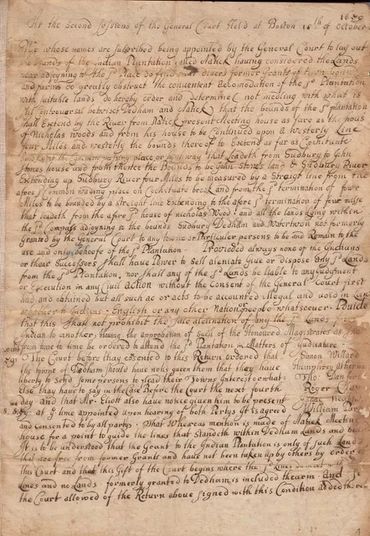 1659
At the Second Sessions of the General Court held at Boston 18th of October
We whose names are subscribed being appointed by the General Court to lay out
the bounds of the Indian Plantation called Natick having considered the Lands
near adjoyning to the sd place do find most desert former grants of Towns
and farms do greatly obstruct the convenient accomodation of the sd Plantation
with sutable lands do hereby order and determine not medling with what is
in controversie betweene Dedham and Natick that the bounds of the sd plantation
shall Extend as the Road from Natick present meeting house as farr as the house
of Nicholas woods and from his house to be continued upon a westerly Line
four Miles and westerly the bounds thereof to Extend as far as Cochituate
place or way that Leadeth from Sudbury to John
house and from thence the Bounds to be Sudbury River
Extending up Sudbury River four Miles to be measured by a Straight line from the
afore sd common wading place in Cochetuate brook and from the sd termination of four
Miles to be bounded by a straight line extending to the afore sd termination of four miles
that leadeth from the afore sd house of nicholas Wood: and all the lands lying within
the sd Compass adjoyning to the bounds Sudbury Dedham and Watertown not formerly
Granted by the General Court to any towne or Particuler persons to be and Remain to the
use and only behoofe of the sd Plantation: Provided always none of the Indians
or their Successors Shall have Power to Sell alienate Give or dispose of any sd Lands
from the sd Plantation, nor shall any of the sd Lands be lîable to any Judgment
or Execution in any Civil action without the Consent of the General Court first
had and obtained but all such ac or acts to be accounted Illegal and void in Law
whether to Indians English or any other Nation Person whatsoever: Provided
that this Shall not prohibit the Sale alienation of any the sd Lands
Indian to another having the approbation of such of the Honoured Magistrates as from
time to time be ordered to attend the sd Plantation in Matters of Judicature
The Court before they Assented to this Return ordered that Simon Willard
the towne of Dedham should have notis given them that they have Humphrey Atherton
liberty to Send some persons to show their Towns Interest or what Tho
Else they have to say in the Case before the Court the next fourth Roger
day and that Mr Eliott also have notice given him to be present
at sd time appointed upon hearing of both Partys it is agreed William Par
and Consented to by all parts. That Whereas mention is made of Natick Meeting
house for a point to guide the lines that Standeth within Dedham Lands and bo
It is to be understood that the Grant to the Indian Plantation is only of such Land
that are free from former Grants and have not been taken up by others by order
this Court and that this Gift of the Court begins where the sd Lines
Lines and no Lands formerly granted to Dedham is included thearin And
the Court allowed of the Return above Signed with this Condition added there